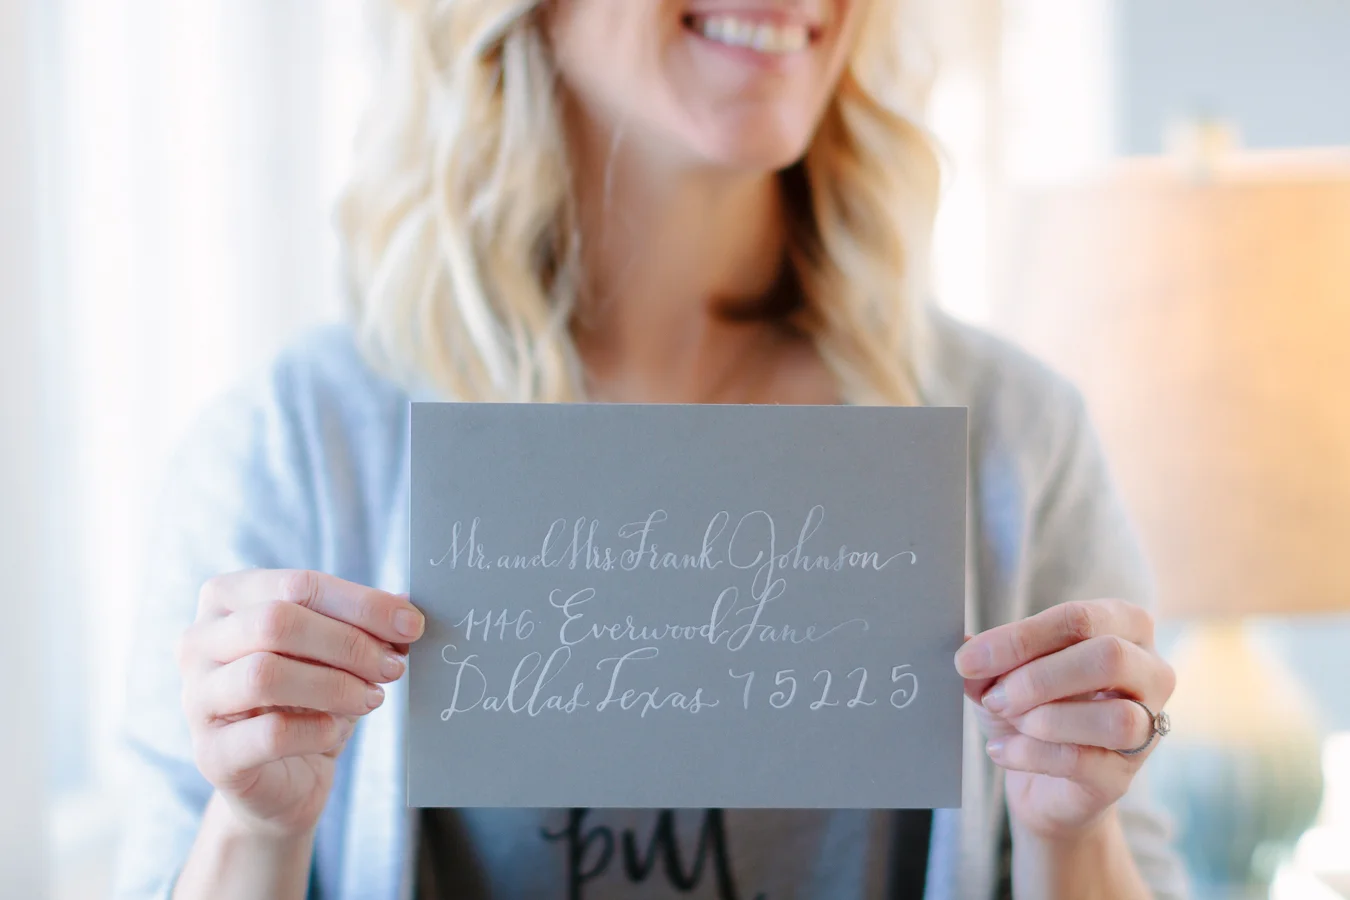 Mr. and Mrs. Frank Johnson
1146 Everwood Lane
Dallas Texas 75225